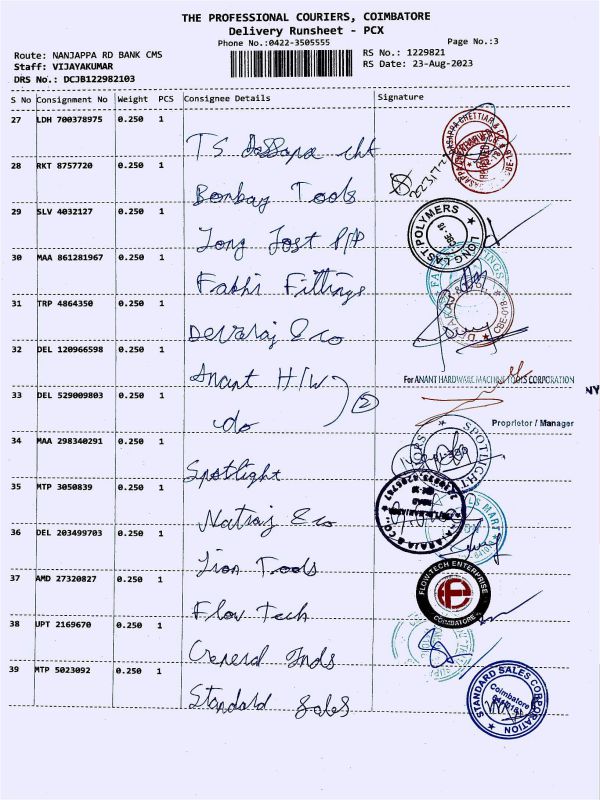 THE PROFESSIONAL COURIERS, COIMBATORE
Delivery Runsheet - PCX
Phone No.:0422-3505555
Page No.:3
Route: NANJAPPA RD BANK CMS
RS No.: 1229821
Staff: VIJAYAKUMAR
RS Date: 23-Aug-2023
DRS No.: DCJB122982103
S No Consignment No Weight PCS Consignee Details Signature
27 LDH 700378975 0.250 1
T.S. cht
28 RKT 8757720 0.250 1
Bombay Tools
29 SLV 4032127 0.250 1
Long Last P/P
LONG LAST POLYMERS
30 MAA 861281967 0.250 1
Fakhi Fittings
31 TRP 4864350 0.250 1
Devaraj & co
32 DEL 120966598 0.250 1
Anant H/W
For ANANT HARDWARE MACHINE TOOLS CORPORATION
33 DEL 529009803 0.250 1
do
2
NY
Proprietor / Manager
34 MAA 298340291 0.250 1
Spotlight
SPOTLIGHT
35 MTP 3050839 0.250 1
Natraj & co
36 DEL 203499703 0.250 1
Lion Tools
37 AMD 27320827 0.250 1
Flow Tech
FLOW-TECH ENTERPRISE
COIMBATORE
38 UPT 2169670 0.250 1
General Inds
39 MTP 5023092 0.250 1
Standard Sales
STANDARD SALES CORPORATION
Coimbatore